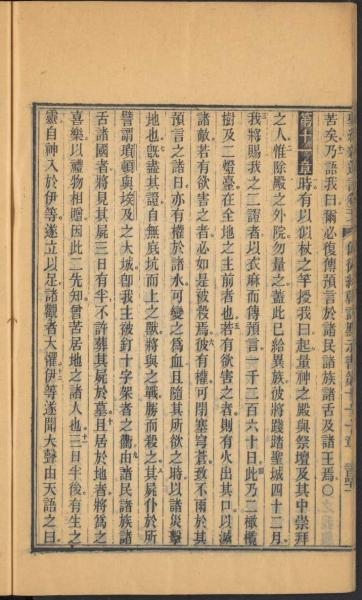 苦矣乃語我曰爾必復傳預言於諸民諸族諸舌及諸王焉○
第十一章 時有以似杖之竿授我曰起量神之殿與祭壇及其中崇拜
之人惟除殿之外院勿量之蓋此已給異族彼將踐踏聖城四十二月
我將賜我之二證者以衣麻而傳預言一千二百六十日此乃二橄欖
樹及二燈臺在全地之主前者也若有欲害之者則有火出其口以滅
諸敵若有欲害之者必如是被殺焉彼有權可閉塞穹蒼致不雨於其
預言之諸日亦有權於諸水可變之爲血且隨其所欲之時以諸災擊
地也旣盡其證自無底坑而上之獸將與之戰勝而殺之其屍仆於所
譬謂瑣頓與埃及之大城卽我主被釘十字架者之衢由諸民諸族諸
舌諸國者將見其屍三日有半不許葬其屍於墓且居於地者將爲之
喜樂以禮物相贈因此二先知曾苦居地之諸人也三日半後有生之
靈自神入於伊等遂立以足諸觀者大懼伊等遂聞大聲由天語之曰